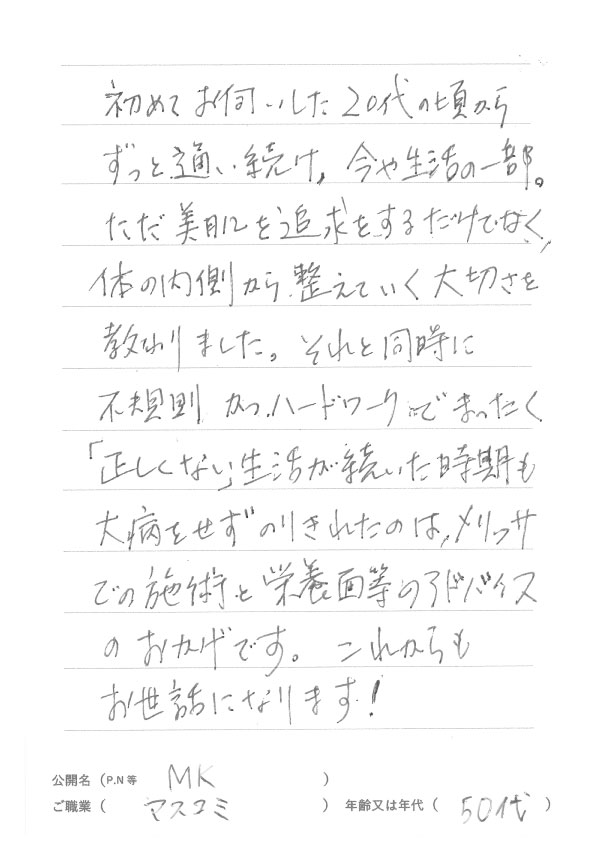 初めてお伺いした20代の頃から
ずっと通い続け、今や生活の一部。
ただ美肌を追求をするだけでなく、
体の内側から整えていく大切さを
教わりました。それと同時に
不規則かつハードワークでまったく
「正しくない」生活が続いた時期も
大病をせずのりきれたのは、メリッサ
での施術と栄養面等のアドバイス
のおかげです。これからも
お世話になります!
公開名(P.N等 MK )
ご職業( マスコミ ) 年齢又は年代( 50代 )